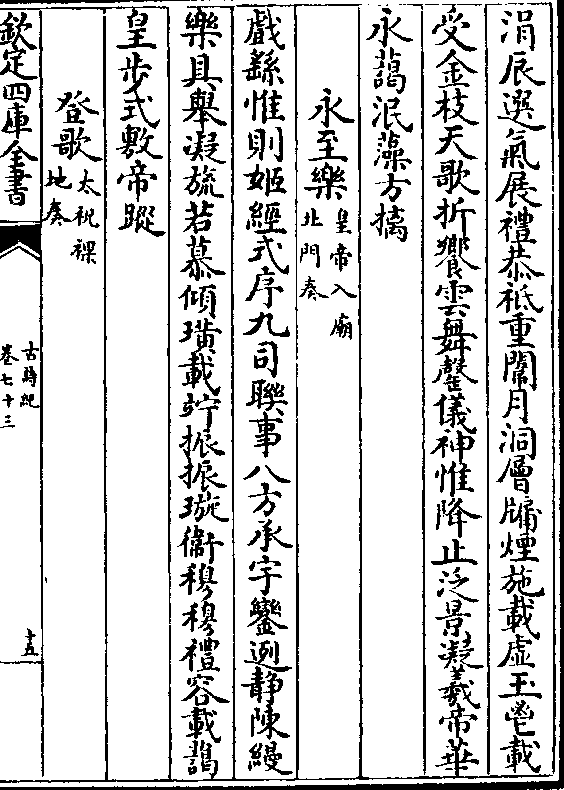 涓辰選氣展禮恭祗重闈月洞層牖煙施載虛玉鬯載
受金枝天歌折饗雲舞罄儀神惟降止泛景凝羲帝華
永藹泯藻方摛
永至樂皇帝入廟北門奏
戲繇惟則姬經式序九司聯事八方承宇鑾迾靜陳縵
樂具舉凝旒若慕傾璜載竚振振璇衞穆穆禮容載藹
皇步式敷帝蹤
登歌太祝祼地奏
欽定四庫全書
古詩紀
卷七十三
十五